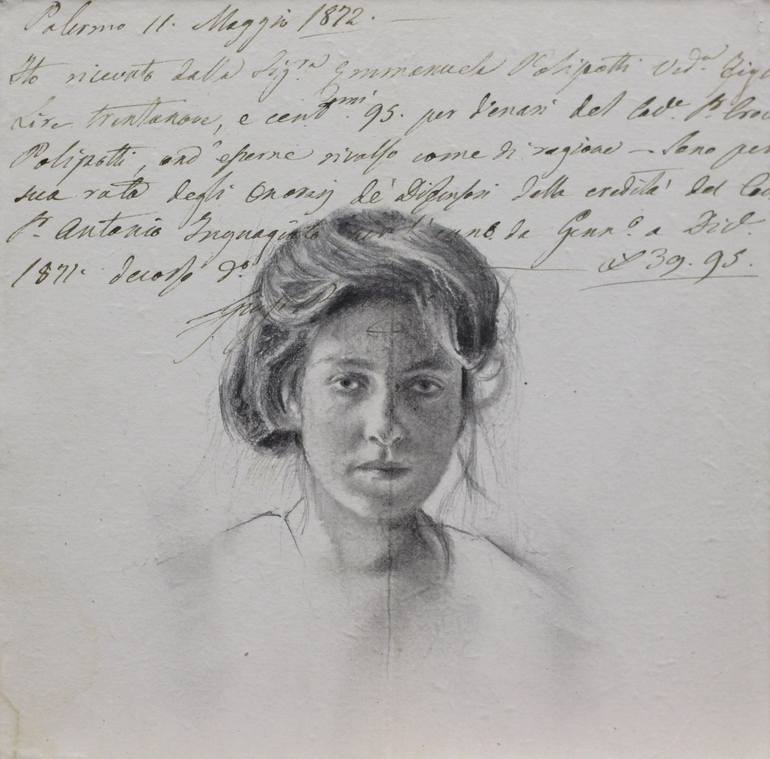 Palermo 11. Maggio 1872.
Ho ricevuto dalla Sig.ra Emmanuela Polipotti Ved.a
Lire trentanove, e cent.mi 95. per denari del Cav.e P.
Polipotti, ond'esserne rivalso come di ragione - Sono per
sua rata degli onorarj de' Difensori della eredità del
Antonio un anno da Genn.o a Dic.e
1871. decorso £ 39. 95.